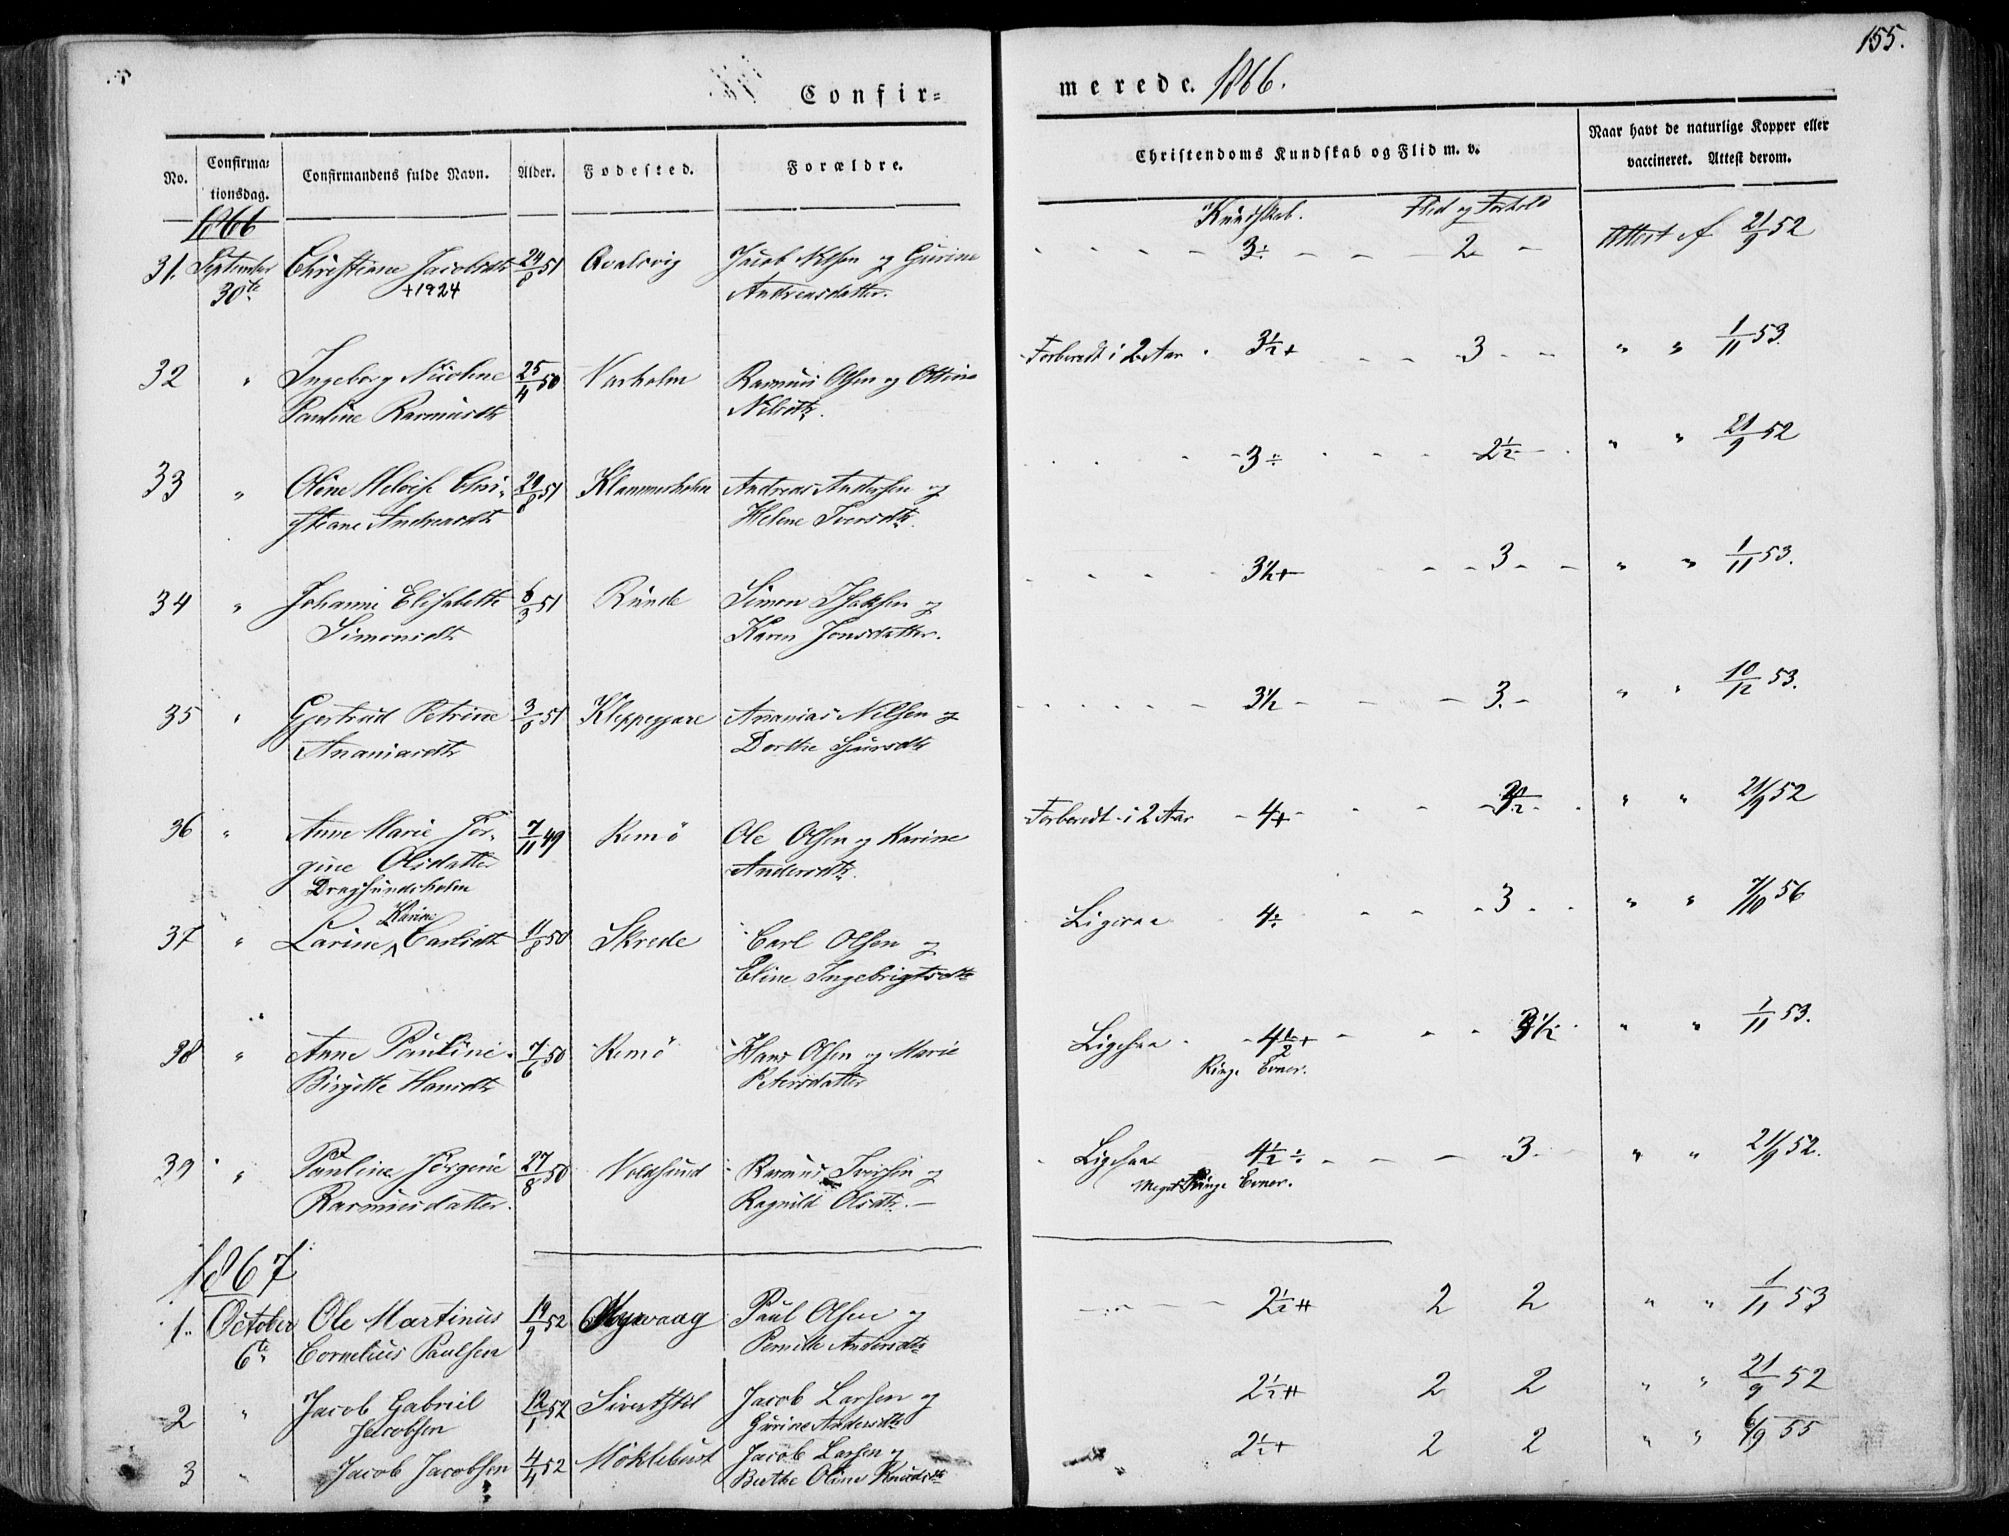 155.
Confir= merede. 1866.
No. Confirmationsdag. Confirmandens fulde Navn. Alder. Fødested. Forældre. Christendoms Kundskab og Flid m. v. Naar havt de naturlige Kopper eller vaccineret. Attest derom.
1866 Kundskab. Flid og Forhold
31. September Christiane Jacobsdtr 24/8 51 Qvalsvig Jacob Nilsen og Gurine 3÷ 2 Attest af 21/9 52
30te +1924 Andreasdatter.
32 " Ingeborg Nicoline 25/4 50 Varholm Rasmus Olsen og Forberedt i 2 Aar 3½+ 3 " " 1/11 53.
Pauline Rasmusdtr Nilsdtr.
33 " Oline 29/8 51 Klammerholm Andreas Andersen og 3÷ 2½ " " 21/9 52
stiane Andreasdtr Helene Iversdtr.
34 " Johanne Elisabeth 6/3 51 Runde Simon Isaksen og 3½+ 3 " " 1/11 53.
Simonsdtr Karen Jonsdatter.
35 " Gjertrud Petrine 3/8 51 Kleppegjare Ananias Nilsen og 3½ 3. " " 10/12 53.
Ananiasdtr Dorthe Sjursdtr
36 " Anne Marie Jør- 7/11 49 Remø Ole Olsen og Karine Forberedt i 2 Aar 4+ " " 21/9 52
gine Olsdatter Andersdtr.
Dragsundsholm
Karine
37 " Larine Carlsdtr 11/8 50 Skrede Carl Olsen og Ligesaa 4÷ 3 " " 7/10 56
Eline Ingebrigtsdtr
38 " Anne Pauline 7/6 50 Remø Hans Olsen og Marie Ligesaa 4½+ 3½ " " 1/11 53.
Birgitte Hansdtr Petersdatter Ringe Evner.
39 " Pauline Jørgine 27/8 50 Voldsund Rasmus Iversen og Ligesaa 4½÷ 3 " " 21/9 52.
Rasmusdatter. Ragnild Olsdtr. Meget Ringe Evner.
1867
1. October Ole Martinus 19/9 52 Paul Olsen og 2½++ 2 2 " " 1/11 53
6te Cornelius Paulsen Pernille Andersdtr
2 " Jacob Gabriel 12/1 52 Jacob Larsen og 2½++ 2 2 " " 21/9 52
Jacobsen Gurine Andersdtr
3 " Jacob Jacobsen 4/4 52 Møklebust Jacob Larsen og 2½+ 2 2 " " 6/9 55
Berthe Oline Knudsdtr